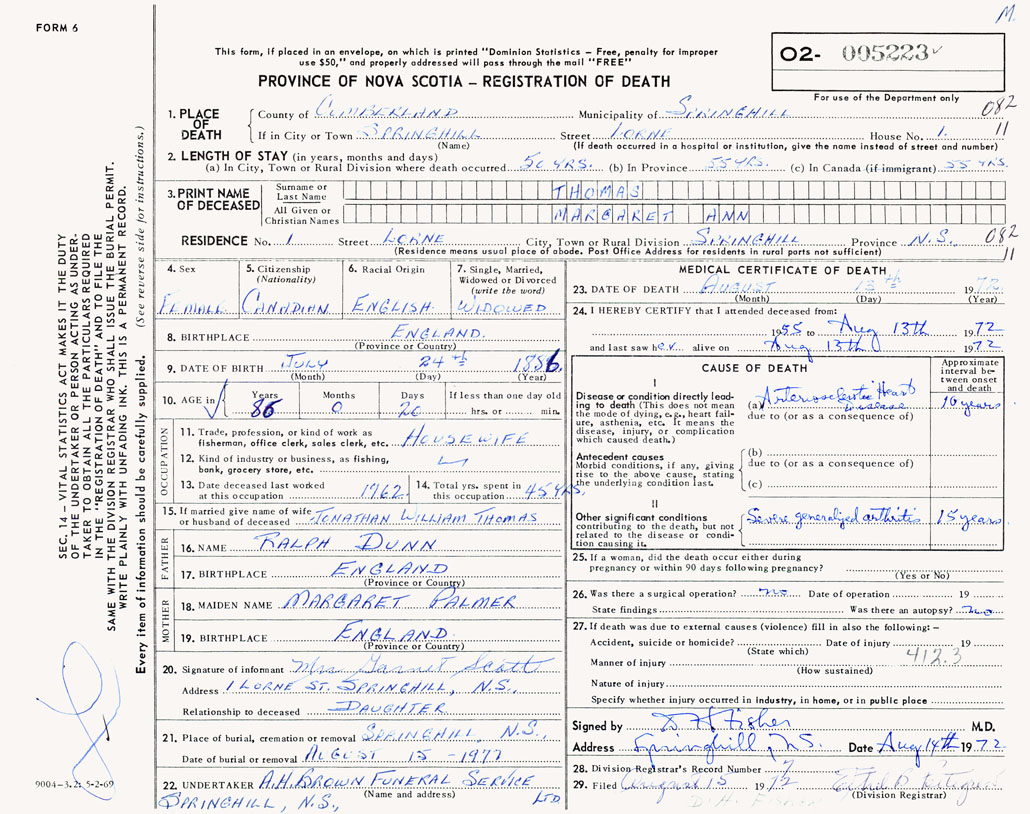 M.
FORM 6
This form, if placed in an envelope, on which is printed "Dominion Statistics – Free, penalty for improper
use $50," and properly addressed will pass through the mail "FREE"
PROVINCE OF NOVA SCOTIA – REGISTRATION OF DEATH
O2- 005223
For use of the Department only
082
11
1. PLACE OF DEATH
County of CUMBERLAND Municipality of SPRINGHILL
If in City or Town SPRINGHILL Street LORNE House No. 1.
(Name) (If death occurred in a hospital or institution, give the name instead of street and number)
2. LENGTH OF STAY (in years, months and days)
(a) In City, Town or Rural Division where death occurred 50 YRS. (b) In Province 55 YRS. (c) In Canada (if immigrant) 55 YRS.
3. PRINT NAME OF DECEASED
Surname or Last Name THOMAS
All Given or Christian Names MARGARET ANN
RESIDENCE No. 1 Street LORNE City, Town or Rural Division SPRINGHILL Province N.S. 082
(Residence means usual place of abode. Post Office Address for residents in rural parts not sufficient) 11
4. Sex
FEMALE
5. Citizenship (Nationality)
CANADIAN
6. Racial Origin
ENGLISH
7. Single, Married, Widowed or Divorced (write the word)
WIDOWED
8. BIRTHPLACE ENGLAND.
(Province or Country)
9. DATE OF BIRTH JULY 24th 1886
(Month) (Day) (Year)
10. AGE in Years 86 Months 0 Days 20 If less than one day old
hrs. or min.
OCCUPATION
11. Trade, profession, or kind of work as
fisherman, office clerk, sales clerk, etc. HOUSEWIFE
12. Kind of industry or business, as fishing,
bank, grocery store, etc.
13. Date deceased last worked
at this occupation 1962
14. Total yrs. spent in
this occupation 45 YRS.
15. If married give name of wife
or husband of deceased JONATHAN WILLIAM THOMAS
FATHER
16. NAME RALPH DUNN
17. BIRTHPLACE ENGLAND
(Province or Country)
MOTHER
18. MAIDEN NAME MARGARET PALMER
19. BIRTHPLACE ENGLAND.
(Province or Country)
20. Signature of informant Mrs Garnet Scott
Address 1 LORNE ST. SPRINGHILL, N.S.,
Relationship to deceased DAUGHTER
21. Place of burial, cremation or removal SPRINGHILL, N.S.
Date of burial or removal AUGUST 15 -1977
22. UNDERTAKER A.H. BROWN FUNERAL SERVICE
(Name and address) LTD
SPRINGHILL, N.S.,
MEDICAL CERTIFICATE OF DEATH
23. DATE OF DEATH AUGUST 13th 1972
(Month) (Day) (Year)
24. I HEREBY CERTIFY that I attended deceased from:
1955 to Aug 13th 1972
and last saw her alive on Aug 13th 1972
CAUSE OF DEATH
Approximate interval between onset and death
I
Disease or condition directly leading to death (This does not mean the mode of dying, e.g., heart failure, asthenia, etc. It means the disease, injury, or complication which caused death.)
(a) Arteriosclerotic Heart Disease 10 years
due to (or as a consequence of)
Antecedent causes
Morbid conditions, if any, giving rise to the above cause, stating the underlying condition last.
(b)
due to (or as a consequence of)
(c)
II
Other significant conditions contributing to the death, but not related to the disease or condition causing it.
Severe generalized arthritis 15 years
25. If a woman, did the death occur either during
pregnancy or within 90 days following pregnancy?
(Yes or No)
26. Was there a surgical operation? no Date of operation 19
State findings Was there an autopsy? no
27. If death was due to external causes (violence) fill in also the following: –
Accident, suicide or homicide? Date of injury 19
(State which) 412.3
Manner of injury
(How sustained)
Nature of injury
Specify whether injury occurred in industry, in home, or in public place
Signed by D H Fisher M.D.
Address Springhill, N.S. Date Aug 14th 1972
28. Division Registrar's Record Number 7
29. Filed August 15 1972
(Division Registrar)
D. H. FISHER
SEC. 14 – VITAL STATISTICS ACT MAKES IT THE DUTY
OF THE UNDERTAKER OR PERSON ACTING AS UNDER-
TAKER TO OBTAIN ALL THE PARTICULARS REQUIRED
IN THE "REGISTRATION OF DEATH" AND TO FILE THE
SAME WITH THE DIVISION REGISTRAR WHO SHALL ISSUE THE BURIAL PERMIT.
WRITE PLAINLY WITH UNFADING INK. THIS IS A PERMANENT RECORD.
Every item of information should be carefully supplied. (See reverse side for instructions.)
9004–3.2: 5-2-69